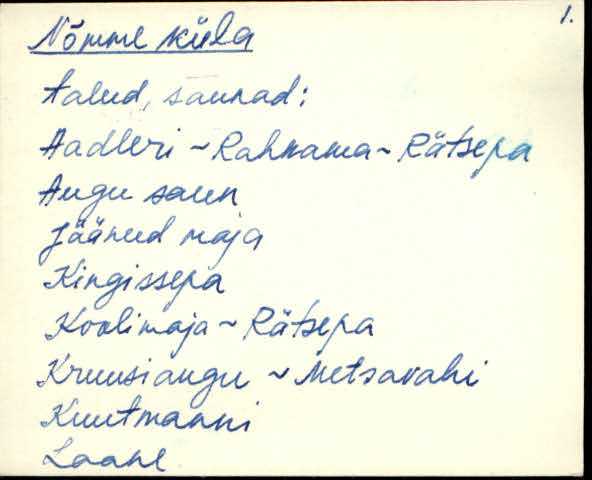 1.
Nõmme küla
talud, saunad:
Aadleri ~ Rahnama ~ Rätsepa
Augu saun
Jäänud maja
Kingissepa
Koolimaja ~ Rätsepa
Kruusiaugu ~ Metsavahi
Kuutmanni
Laane